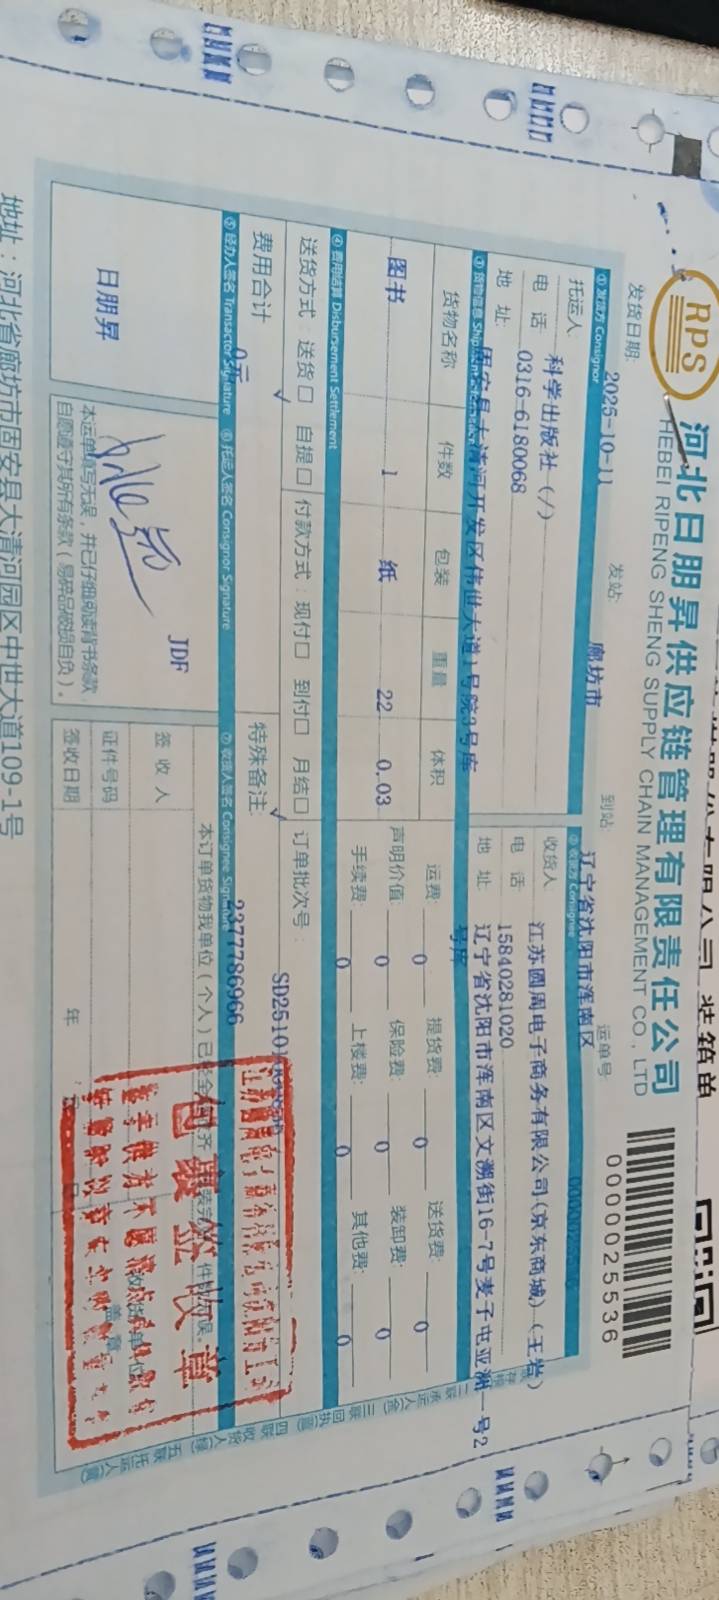 RPS
河北日朋昇供应链管理有限责任公司
HEBEI RIPENG SHENG SUPPLY CHAIN MANAGEMENT CO., LTD
0000025536
发货日期: 2025-10-11 发站: 廊坊市 到站: 辽宁省沈阳市浑南区 运单号:
① 发货方 Consignor ② 收货方 Consignee
托运人 科学出版社(/) 收货人 江苏圆周电子商务有限公司(京东商城)(王岩)
电 话 0316-6180068 电 话 15840281020
地 址: 固安县大清河开发区伟世大道1号院3号库 地 址 辽宁省沈阳市浑南区文溯街16-7号麦子屯亚洲一号2号库
③ 货物信息
货物名称 件数 包装 重量 体积 运费: 0 提货费: 0 送货费: 0
图书 1 纸 22 0.03 声明价值: 0 保险费: 0 装卸费: 0
手续费: 0 上楼费: 0 其他费: 0
④ 费用结算 Disbursement Settlement
送货方式: 送货□ ✓ 自提□ 付款方式: 现付□ 到付□ 月结□ ✓ 订单批次号:
费用合计 0元 特殊备注: 2377786966
⑤ 经办人签名 Transactor Signature ⑥ 托运人签名 Consignor Signature ⑦ 收货人签名 Consignee Signature
日朋昇
JDF
本运单填写无误,并已仔细阅读背书条款
自愿遵守其所有条款(易碎品破损自负)。
签 收 人
证件号码
签收日期 年
包裹签收章
二联 承运人
三联 回执
四联 收货人
五联 托运人
地址:河北省廊坊市固安县大清河园区中世大道109-1号
装箱单